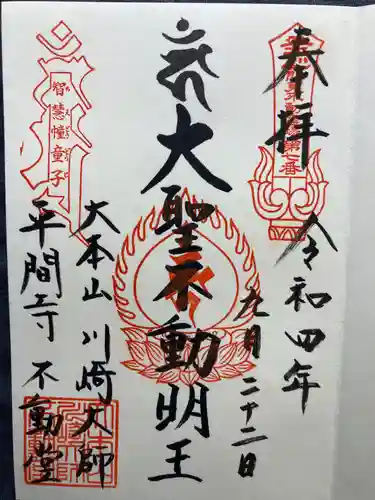 奉拝
令和四年
九月二十二日
大聖不動明王
大本山川崎大師
平間寺 不動堂
智慧幢童子